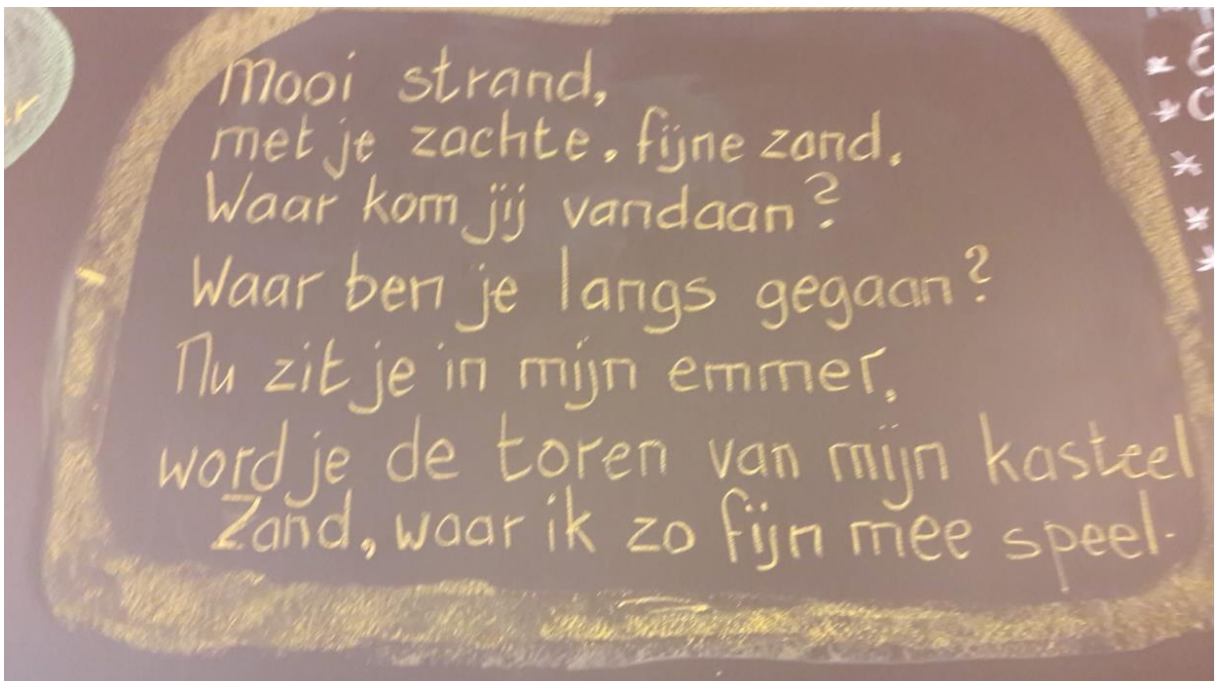 Mooi strand,
met je zachte, fijne zand.
Waar kom jij vandaan?
Waar ben je langs gegaan?
Nu zit je in mijn emmer,
word je de toren van mijn kasteel
Zand, waar ik zo fijn mee speel.